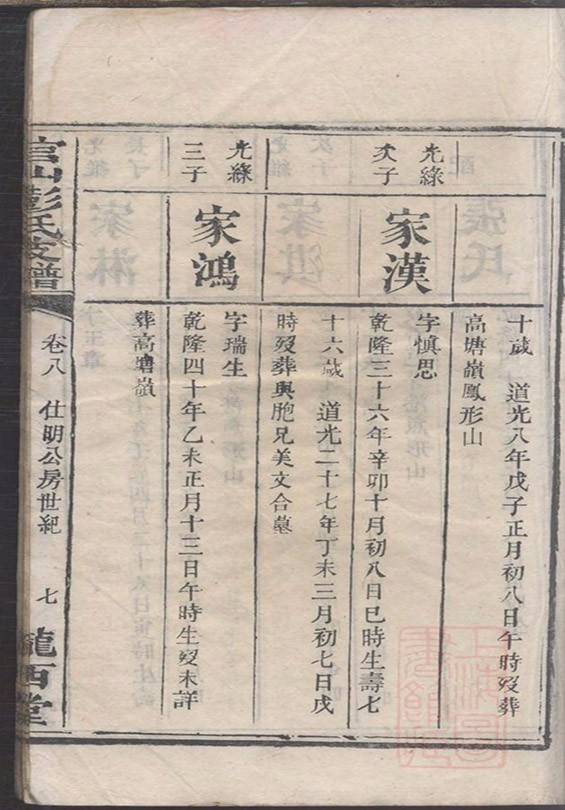 十歲　道光八年戊子正月初八日午時歿葬
高塘嶺鳳形山
光綠
次子
家漢
字慎思
乾隆三十六年辛卯十月初八日巳時生壽七
十六歲　道光二十七年丁未三月初七日戌
時歿葬與胞兄美文合墓
光綠
三子
家鴻
字瑞生
乾隆四十年乙未正月十三日午時生歿未詳
葬高塘嶺
官山彭氏支譜
卷八　仕明公房世紀　七
隴西堂
上海圖
書館藏